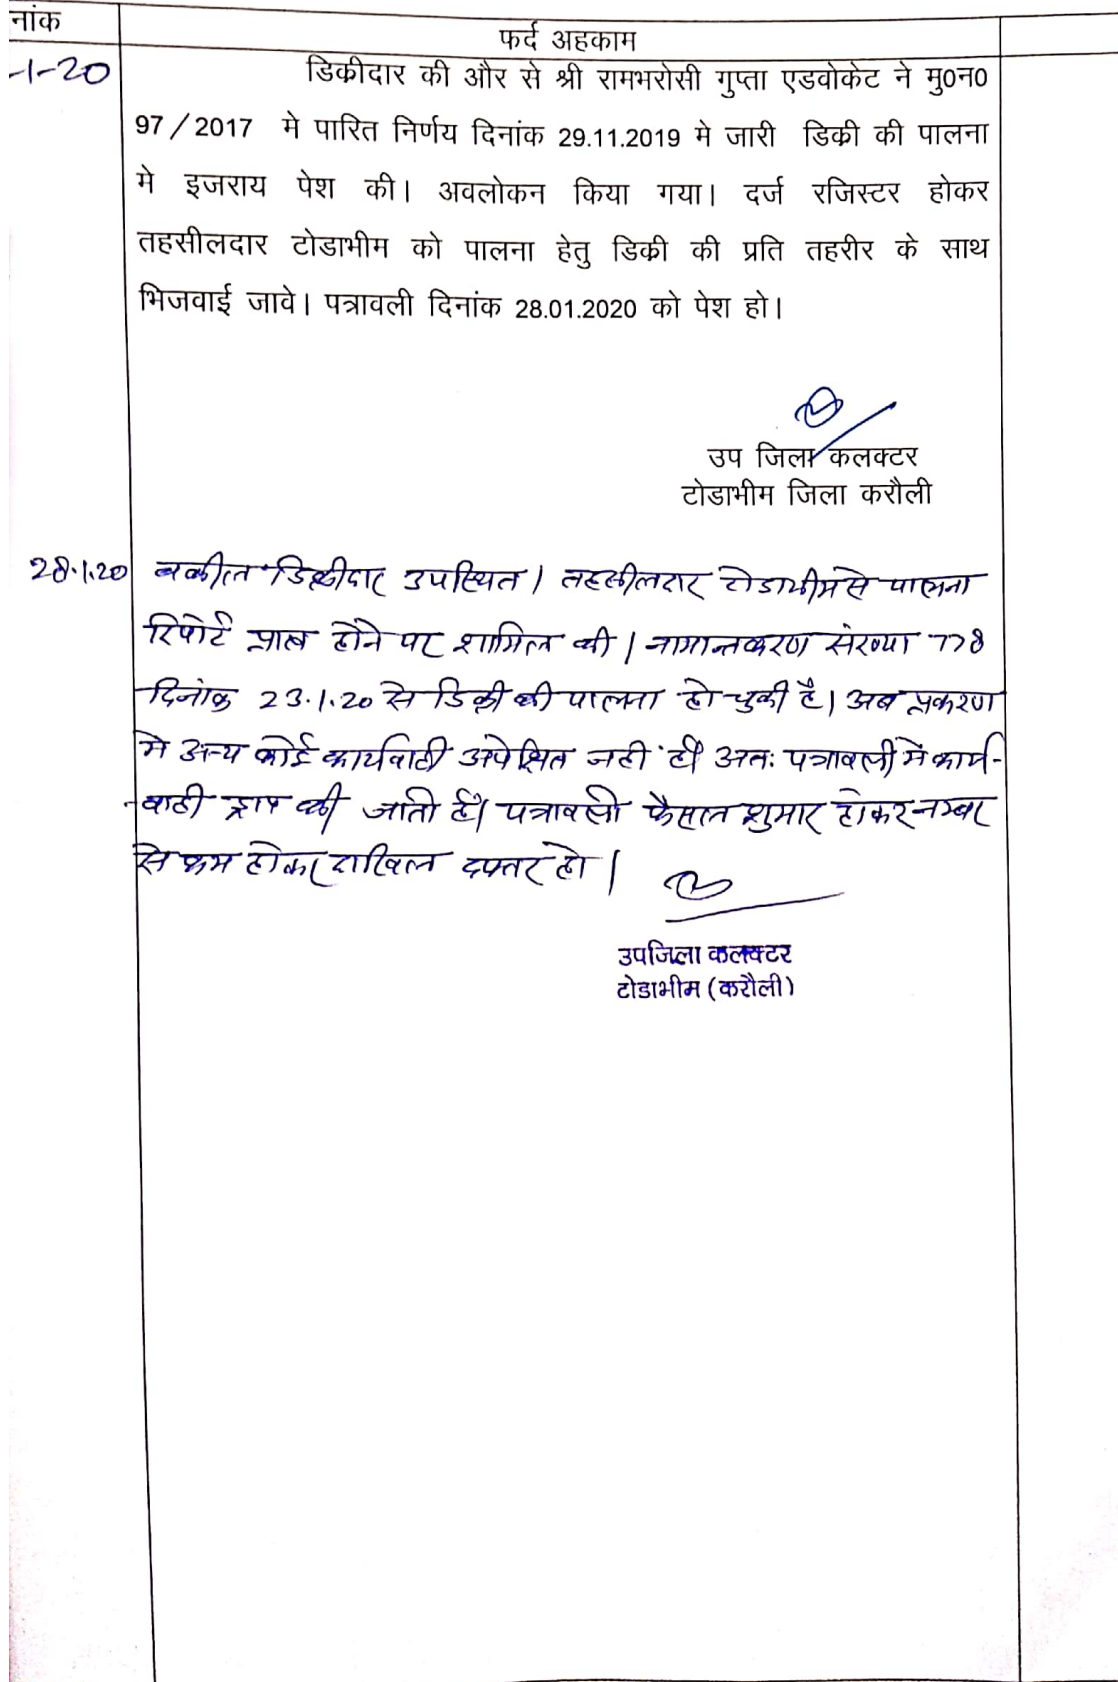 नांक
फर्द अहकाम
-1-20
डिक्रीदार की और से श्री रामभरोसी गुप्ता एडवोकेट ने मु0न0
97/2017 मे पारित निर्णय दिनांक 29.11.2019 मे जारी डिक्री की पालना
मे इजराय पेश की। अवलोकन किया गया। दर्ज रजिस्टर होकर
तहसीलदार टोडाभीम को पालना हेतु डिक्री की प्रति तहरीर के साथ
भिजवाई जावे। पत्रावली दिनांक 28.01.2020 को पेश हो।
उप जिला कलक्टर
टोडाभीम जिला करौली
28.1.20 वकील डिक्रीदार उपस्थित। तहसीलदार टोडाभीम से पालना
रिपोर्ट प्राप्त होने पर शामिल की। नामान्तकरण संख्या 778
दिनांक 23.1.20 से डिक्री की पालना हो चुकी है। अब प्रकरण
मे अन्य कोई कार्यवाही अपेक्षित नही है। अतः पत्रावली में कार्य-
वाही ड्राप की जाती है। पत्रावली फैसल शुमार होकर नम्बर
से कम होकर दाखिल दफ्तर हो।
उपजिला कलक्टर
टोडाभीम (करौली)